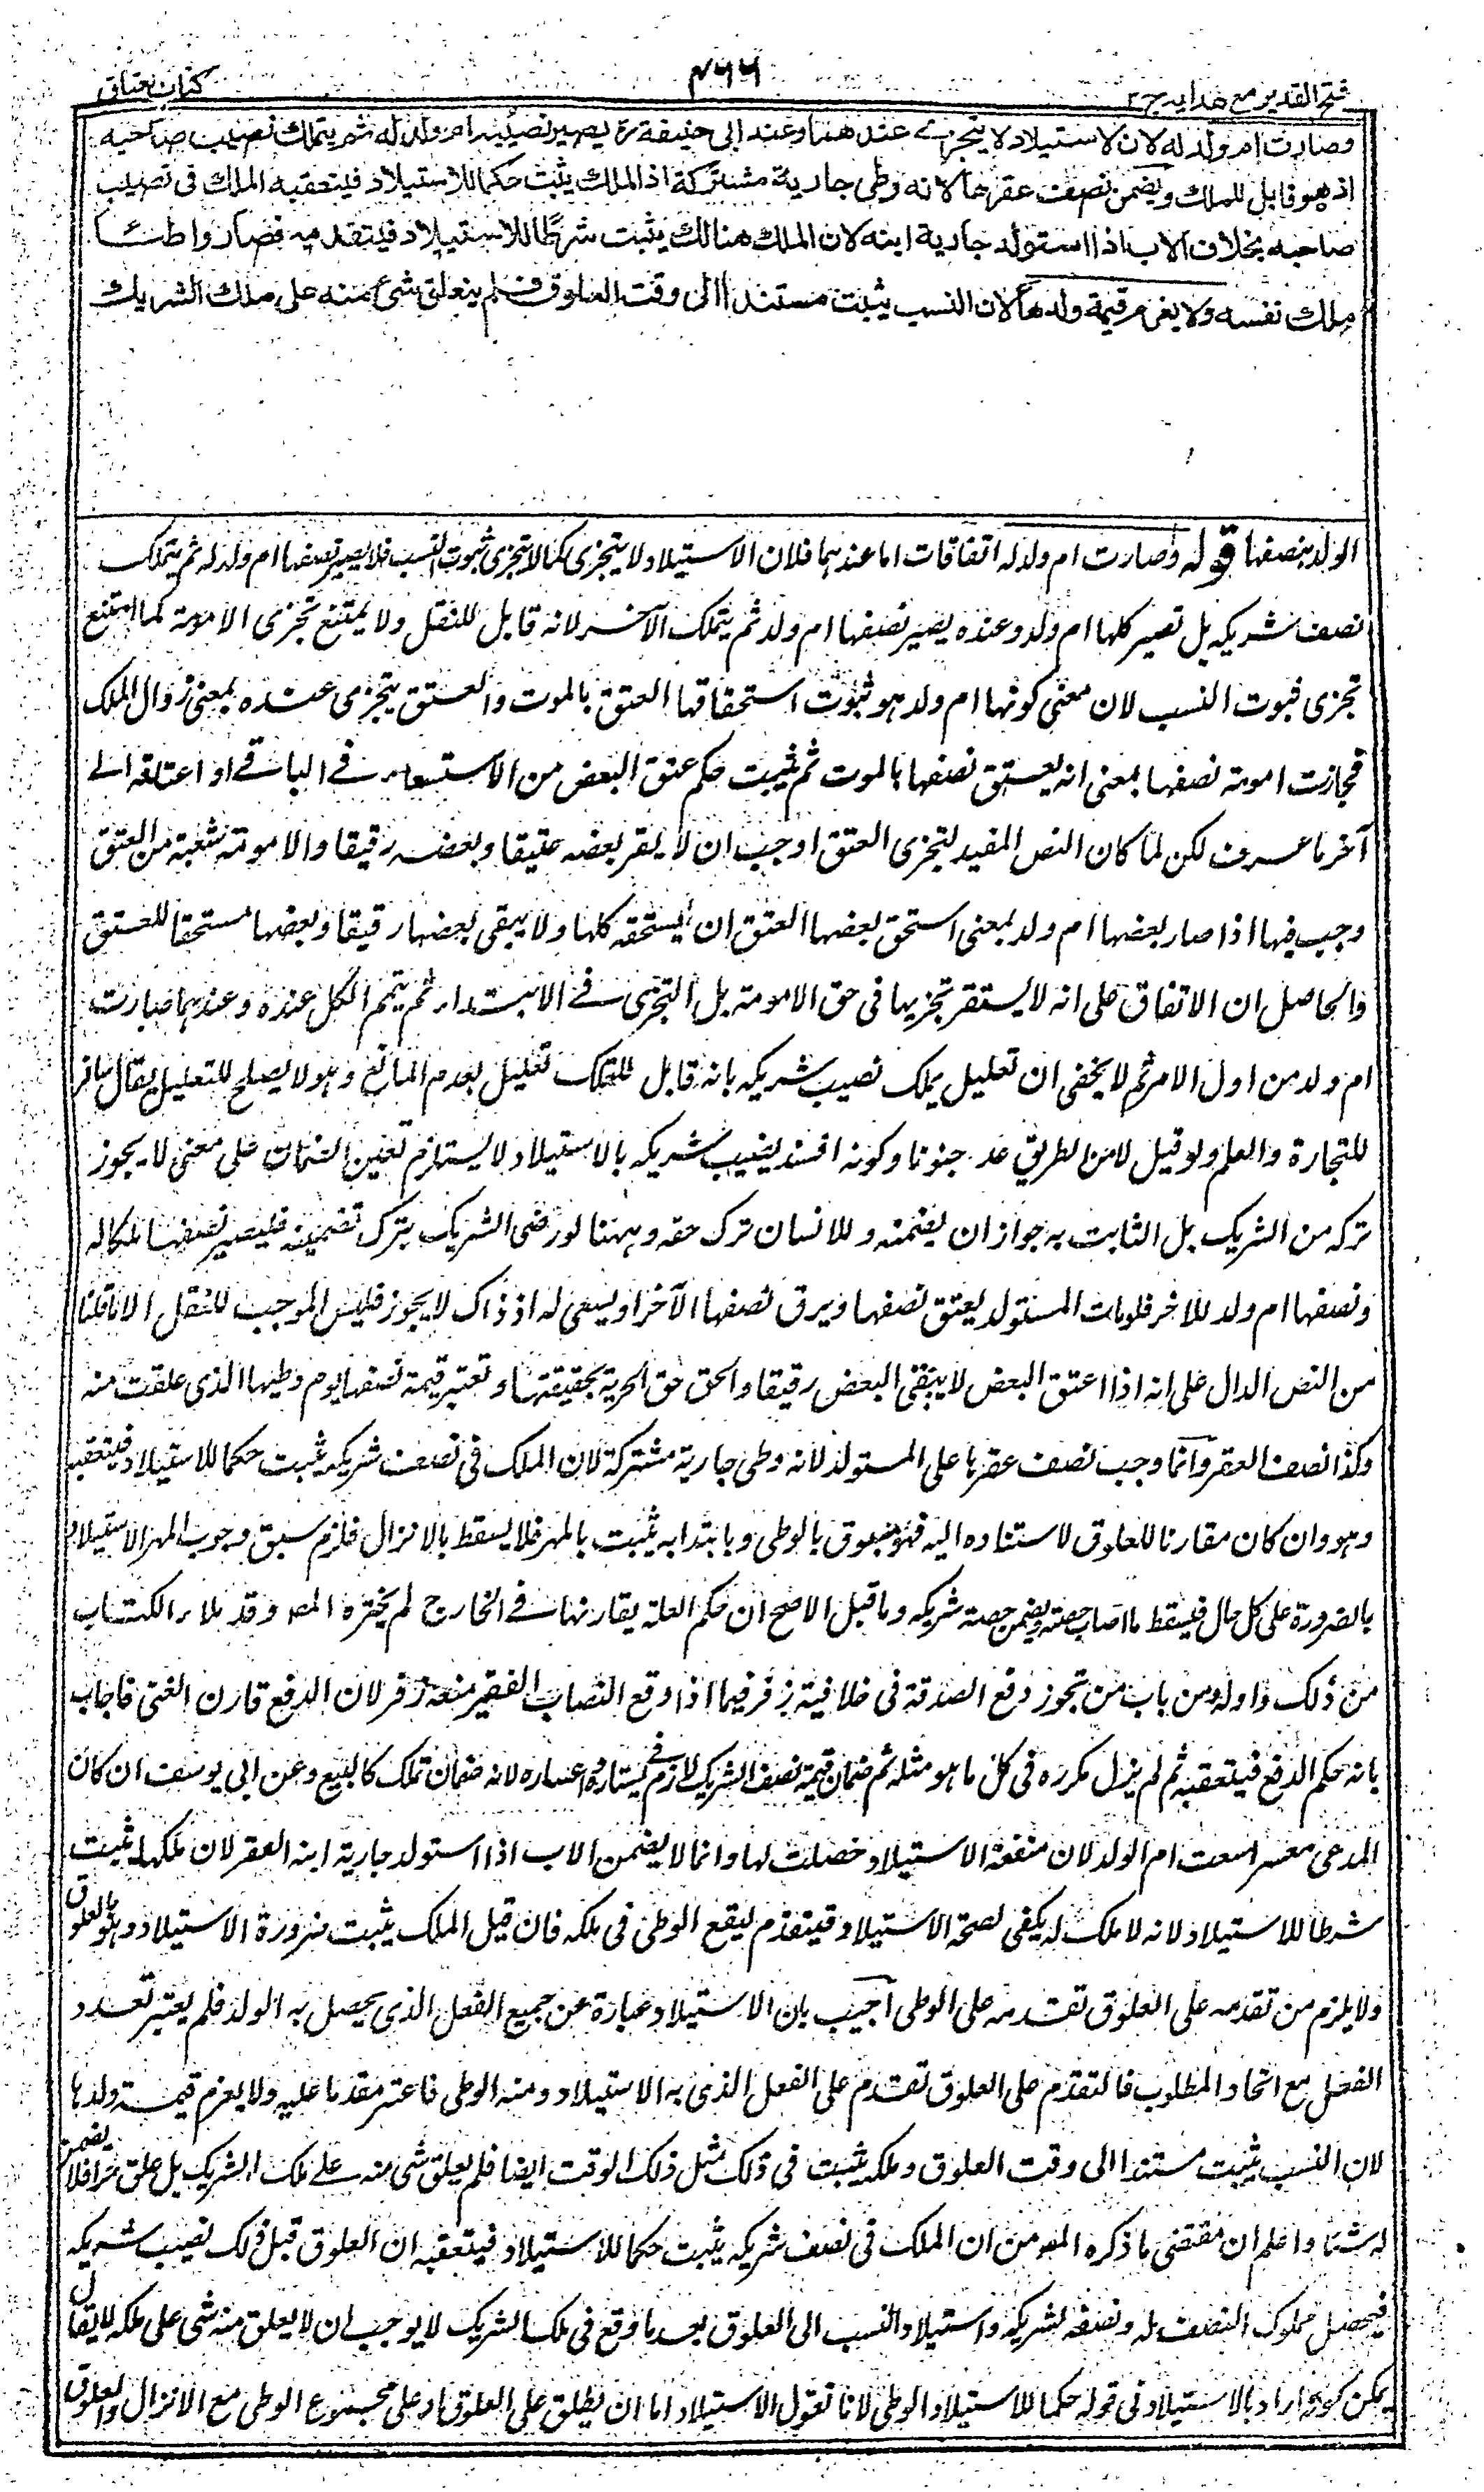 فتح القدير مع هدايه ج ٢
٤٦٦
كتاب العتاق
وصارت ام ولد له لان الاستيلاد لا يتجزى عندهما وعند ابى حنيفة رح يصير نصيبه ام ولد له ثم يتملك نصيب صاحبه
اذ هو قابل للملك ويضمن نصف عقرها لانه وطى جارية مشتركة اذ الملك يثبت حكما للاستيلاد فيتعقبه الملك فى نصيب
صاحبه بخلاف الاب اذا استولد جارية ابنه لان الملك هنالك يثبت شرطا للاستيلاد فيتقدمه فصار واطئا
ملك نفسه ولا يغرم قيمة ولدها لان النسب يثبت مستندا الى وقت العلوق فلم يتعلق شئ منه على ملك الشريك
الولد بنصفها قوله وصارت ام ولد له اتفاقات اما عندهما فلان الاستيلاد لا يتجزى كما لا يتجزى ثبوت النسب فلا يصير نصفها ام ولد له ثم يتملك
نصف شريكه بل تصير كلها ام ولد وعنده يصير نصفها ام ولد ثم يتملك الآخر لانه قابل للنقل ولا يمتنع تجزى الامومة كما امتنع
تجزى ثبوت النسب لان معنى كونها ام ولد هو ثبوت استحقاقها العتق بالموت والعتق يتجزى عنده بمعنى زوال الملك
فجازت امومة نصفها بمعنى انه يعتق نصفها بالموت ثم يثبت حكم عتق البعض من الاستسعاء فى الباقے او اعتاقه الے
آخر ما عرف لكن لما كان النص المفيد لتجزى العتق اوجب ان لا يقر بعضه عتيقا وبعضه رقيقا والامومة شعبة من العتق
وجب فيها اذا صار بعضها ام ولد بمعنى استحق بعضها العتق ان يستحقه كلها ولا يبقى بعضها رقيقا وبعضها مستحقا للعتق
والحاصل ان الاتفاق على انه لا يستقر تجزيها فى حق الامومة بل التجزى فے الابتداء ثم يتمم الكل عنده وعندهما صارت
ام ولد من اول الامر ثم لا يخفى ان تعليل يملك نصيب شريكه بانه قابل للتملك تعليل بعدم المانع وهو لا يصلح للتعليل يقال سافر
للتجارة والعلم ولو قيل لا من الطريق عد جنونا وكونه افسد نصيب شريكه بالاستيلاد لا يستلزم تعين الضمان على معنى لا يجوز
تركه من الشريك بل الثابت به جواز ان يضمنه وللانسان ترك حقه وههنا لو رضى الشريك بترك تضمينه فليصير نصفها لمكاله
ونصفها ام ولد للاخر فلو مات المستولد يعتق نصفها ويرق نصفها الآخر او يسعى له اذ ذاك لا يجوز فليس الموجب للنقل الا ما قلنا
من النص الدال على انه اذا اعتق البعض لا يبقى البعض رقيقا والحق حق الحرية بحقيقتها وتعتبر قيمة نصفها يوم وطيها الذى علقت منه
وكذا نصف العقر وانما وجب نصف عقرها على المستولد لانه وطى جارية مشتركة لان الملك فى نصف شريكه يثبت حكما للاستيلاد فيتعقبه
وهو وان كان مقارنا للعلوق لاستناده اليه فهو مسبوق بالوطى وبابتدائه يثبت المهر فلا يسقط بالانزال فلزم سبق وجوب المهر الاستيلاد
بالضرورة على كل حال فيسقط ما اصاب حصته ويضمن حصة شريكه وما قيل الاصح ان حكم العلة يقارنها فے الخارج لم يختره المص وقد ملاء الكتاب
من ذلك واوله من باب من تجوز دفع الصدقة فى خلافية زفر فيما اذا دفع النصاب الفقير منعه زفر لان الدفع قارن الغنى فاجاب
بانه حكم الدفع فيتعقبه ثم لم يزل مكرره فى كل ما هو مثله ثم ضمان قيمة نصف الشريك لازم فى يساره واعساره لانه ضمان تملك كالبيع وعن ابى يوسف ان كان
المدعى معسرا سعت ام الولد لان منفعة الاستيلاد حصلت لها وانما لا يضمن الاب اذا استولد جارية ابنه العقر لان ملكها يثبت
شرطا للاستيلاد لانه لا ملك له يكفى لصحة الاستيلاد فيتقدم ليقع الوطى فى ملكه فان قيل الملك يثبت ضرورة الاستيلاد وهو بالعلوق
ولا يلزم من تقدمه على العلوق تقدمه على الوطى اجيب بان الاستيلاد عبارة عن جميع الفعل الذى يحصل به الولد فلم يعتبر تعدد
الفعل مع اتحاد المطلوب فالتقدم على العلوق تقدم على الفعل الذى به الاستيلاد ومنه الوطى فاعتبر مقدما عليه ولا يغرم قيمة ولدها
لان النسب يثبت مستندا الى وقت العلوق وملكه يثبت فى ذلك مثل ذلك الوقت ايضا فلم يعلق شى منه على ملك الشريك بل علق حرا فلا يضمن
له شئا واعلم ان مقتضى ما ذكره المص من ان الملك فى نصف شريكه يثبت حكما للاستيلاد فيتعقبه ان العلوق قبل ملك نصيب شريكه
فيحصل مملوك النصف له ونصفه لشريكه واستيلاد النسب الى العلوق بعد ما وقع فى ملك الشريك لا يوجب ان لا يعلق منه شى على ملكه لا يقال
يمكن كونه اراد بالاستيلاد فى قوله حكما للاستيلاد الوطى لانا نقول الاستيلاد اما ان يطلق على العلوق او على مجموع الوطى مع الانزال والعلوق